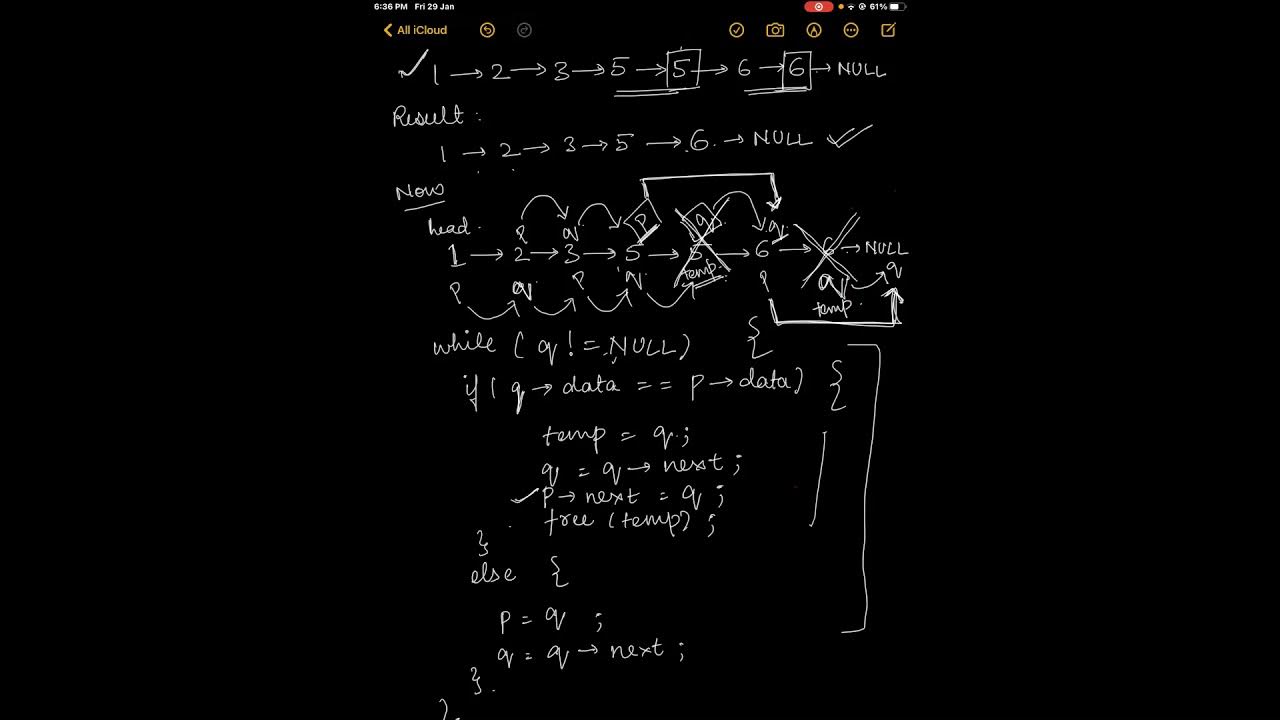 6:36 PM Fri 29 Jan 61%
All iCloud
1 → 2 → 3 → 5 → 5 → 6 → 6 → NULL
Result :
1 → 2 → 3 → 5 → 6 → NULL
Now
head
p q p q q
1 → 2 → 3 → 5 → 5 → 6 → 6 → NULL
p q p q temp p q q
temp
while ( q != NULL) {
if ( q → data == p → data) {
temp = q ;
q = q → next ;
p → next = q ;
free (temp) ;
}
else {
p = q ;
q = q → next ;
}
}